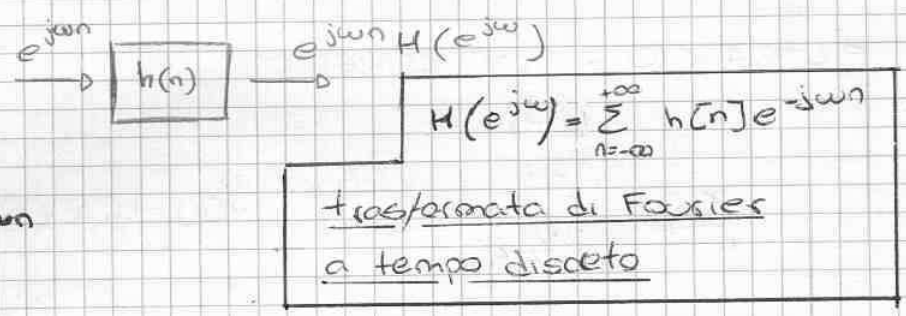 e^{jωn} h(n) e^{jωn} H(e^{jω})
H(e^{jω}) = \sum_{n=-∞}^{+∞} h[n] e^{-jωn}
trasformata di Fourier
a tempo discreto